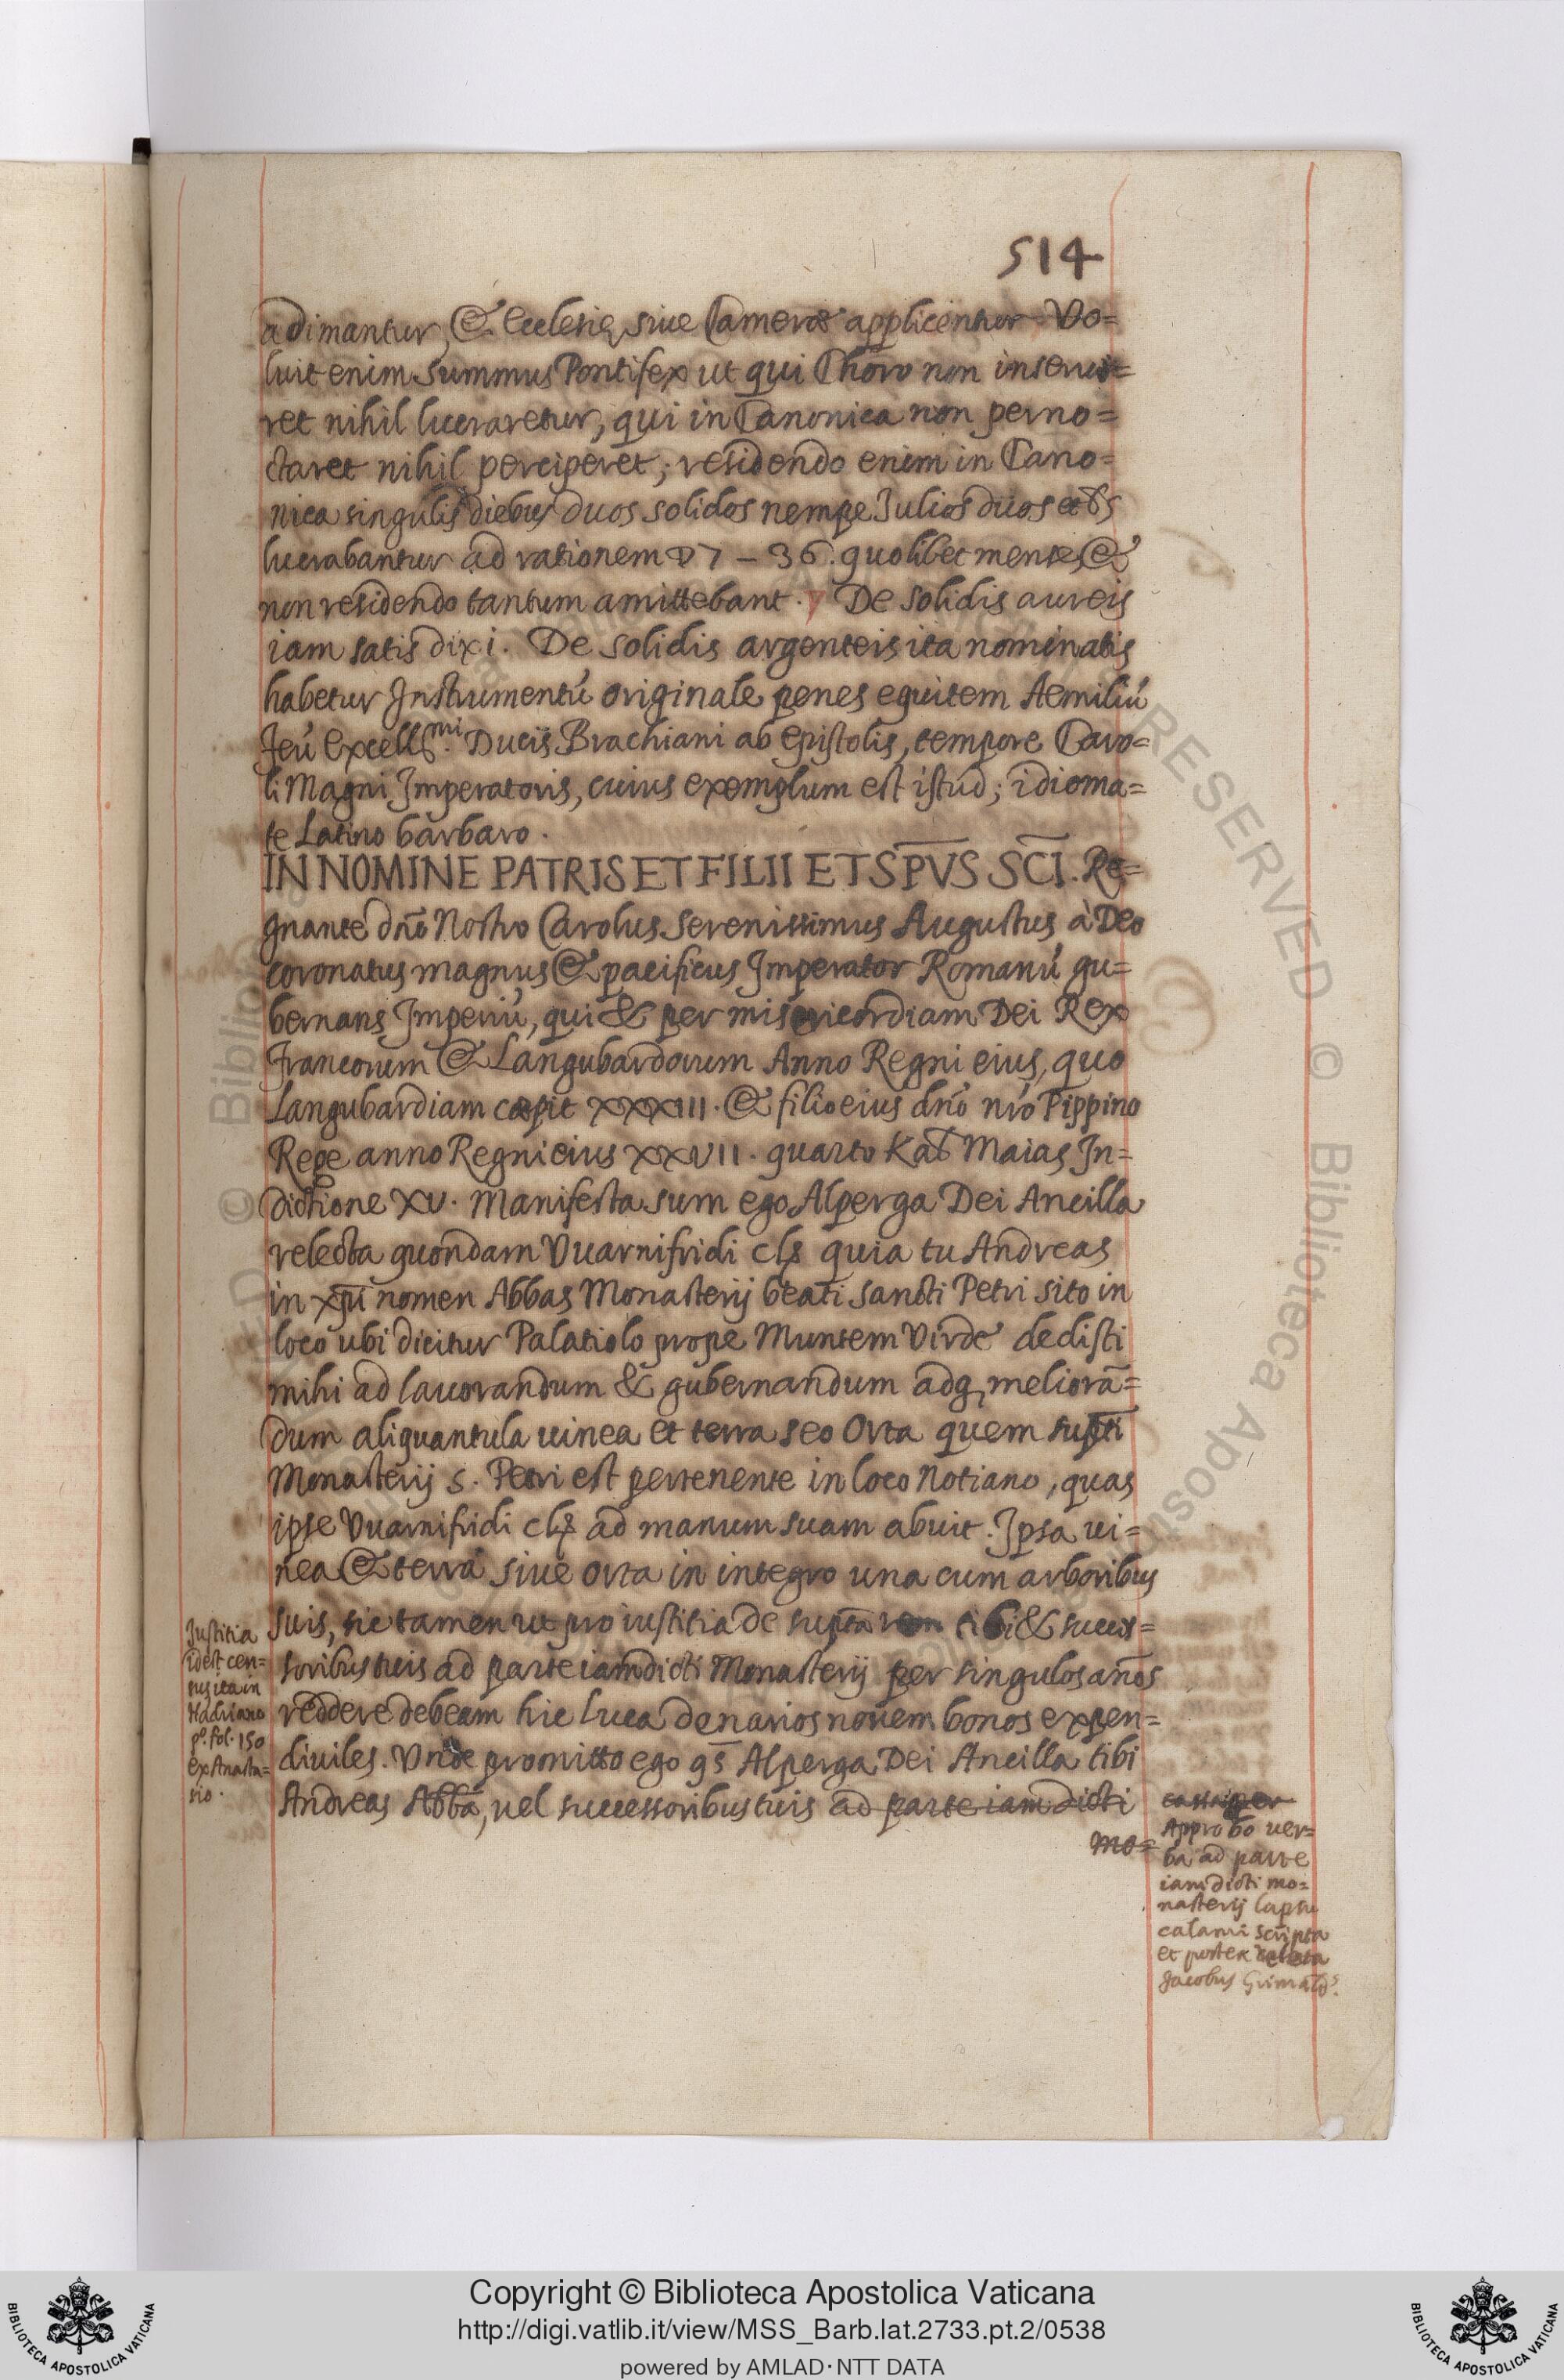 514
adimantur, & Ecclesię siue Cameræ applicentur. Vo=
luit enim Summus Pontifex ut qui Choro non inserui=
ret nihil lucraretur, qui in Canonica non perno=
ctaret nihil perciperet; residendo enim in Cano=
nica singulis diebus duos solidos nempe Julios duos
lucrabantur ad rationem 7 – 36. quolibet mense, &
non residendo tantum amittebant. De solidis aureis
iam satis dixi. De solidis argenteis ita nominatis
habetur Instrumentū originale penes equitem Aemiliū
Feū Excellmi. Ducis Brachiani ab epistolis, tempore Caro=
li Magni Imperatoris, cuius exemplum est istud; idioma=
te Latino barbaro.
IN NOMINE PATRIS ET FILII ET SPVS SCI. Re=
gnante dnō Nostro Carolus Serenissimus Augustus à Deo
coronatus magnus & pacificus Imperator Romanū gu=
bernans Imperiū, qui & per misericordiam Dei Rex
Francorum & Langubardorum Anno Regni eius, quo
Langubardiam cæpit XXXIII. & filio eius dnō nrō Pippino
Rege anno Regni eius XXVII. quarto Kal Maias In=
dictione XV. Manifesta sum ego Alperga Dei Ancilla
relecta quondam Vuarnifridi cls quia tu Andreas
in xpī nomen Abbas Monasterij beati sancti Petri sito in
loco ubi dicitur Palatiolo prope Muntem Virde dedisti
mihi ad lauorandum & gubernandum adq, meliorā=
dum aliquantula uinea et terra seo Orta quem supti
Monasterij S. Petri est pertenente in loco Notiano, quas
ipse Vuarnifridi cls ad manum suam abuit. Ipsa ui=
nea & terra siue orta in integro una cum arboribus
suis, sic tamen ut pro iustitia de supta tibi & succes=
soribus tuis ad parte iamdicti Monasterij per singulos anōs
reddere debeam hic Luca denarios nouem bonos expen=
diuiles. Vnde promitto ego qs Alperga Dei Ancilla tibi
Andreas Abbā, uel successoribus tuis ad parte iam dicti
mo=
Justitia
idest cen=
sus ita in
Hadriano
po. fol. 150
ex Anasta=
sio.
Approbo uer=
ba ad parte
iam dicti mo=
nasterij lapsu
calami scripta
et postea deleta
Jacobus Grimalds.
Copyright © Biblioteca Apostolica Vaticana
http://digi.vatlib.it/view/MSS_Barb.lat.2733.pt.2/0538
powered by AMLAD·NTT DATA
BIBLIOTECA APOSTOLICA VATICANA
BIBLIOTECA APOSTOLICA VATICANA